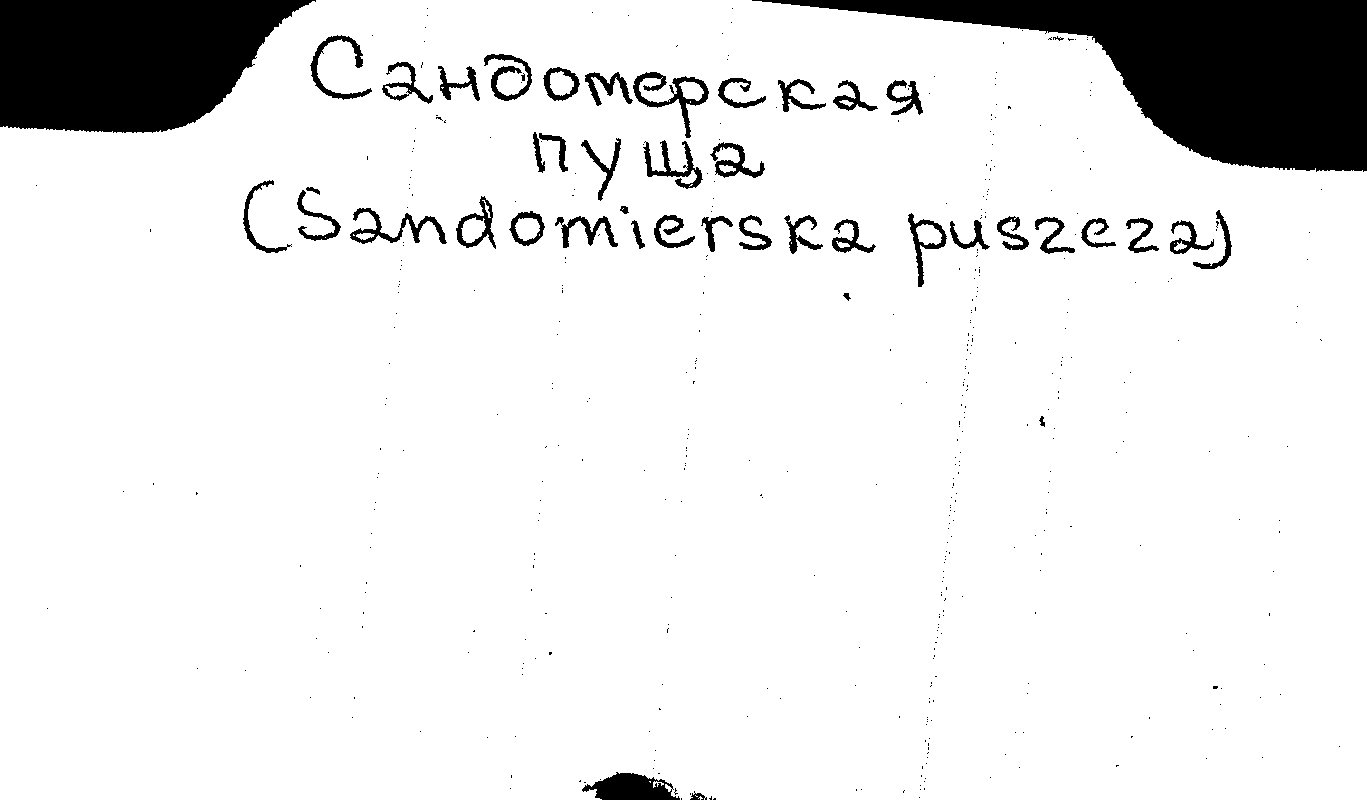 Сандомерская
пуща
(Sandomierska puszcza)